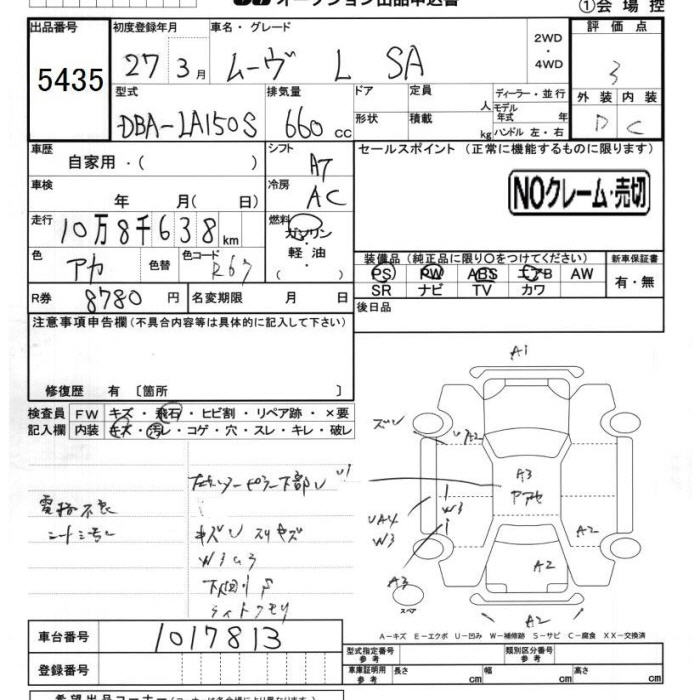 オークション出品申込書
①会場控
出品番号 初度登録年月 車名・グレード 評価点
5435 27年3月 ムーヴ L SA 2WD・4WD 3
型式 排気量 ドア 定員 人 ディーラー・並行 外装 内装
DBA-LA150S 660cc 形状 積載 kg モデル年式 年 ハンドル 左・右 D C
車歴 自家用・( ) シフト AT セールスポイント (正常に機能するものに限ります)
車検 年 月( 日) 冷房 AC NOクレーム・売切
走行 10万8千638km 燃料 ガソリン・軽油 ( )
色 アカ 色替 色コード R67 装備品(純正品に限り○をつけてください) 新車保証書
PS PW ABS エアB AW 有・無
SR ナビ TV カワ
R券 8780円 名変期限 月 日 後日品
注意事項申告欄(不具合内容等は具体的に記入して下さい)
修復歴 有 〔箇所 〕
検査員記入欄 FW キズ・飛石・ヒビ割・リペア跡・×要
内装 キズ・汚レ・コゲ・穴・スレ・キレ・破レ
キズU スリキズ
W3
下回りS
ライトクモリ
A1
A2
A3
W3
W3
A2
A3
A2
スペア
A2
A-キズ E-エクボ U-凹み W-補修跡 S-サビ C-腐食 XX-交換済
車台番号 1017813
登録番号
型式指定番号 参考 類別区分番号 参考
車庫証明用 参考 長さ cm 幅 cm 高さ cm
希望出品コーナー